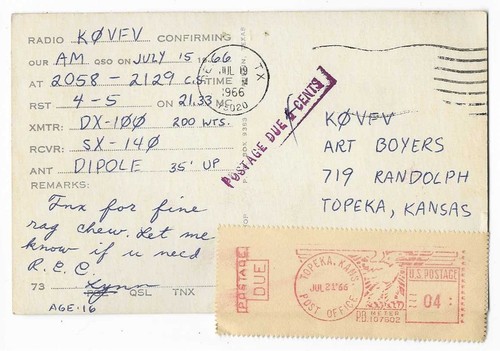 RADIO KØVFV CONFIRMING
OUR AM QSO ON JULY 15 1966
AT 2058 - 2129 C.S. TIME
RST 4-5 ON 21.33 MC
XMTR: DX-100 200 WTS.
RCVR: SX-140
ANT DIPOLE 35' UP
REMARKS:
Tnx for fine
rag chew. Let me
know if u need
R.E.C.
73 Lynn
QSL TNX
AGE-16
TX
JUL 19
1966
POSTAGE DUE CENTS
KØVFV
ART BOYERS
719 RANDOLPH
TOPEKA, KANSAS
POSTAGE
DUE
TOPEKA, KANS.
JUL 21 '66
POST OFFICE
U.S. POSTAGE
04
P.B. METER